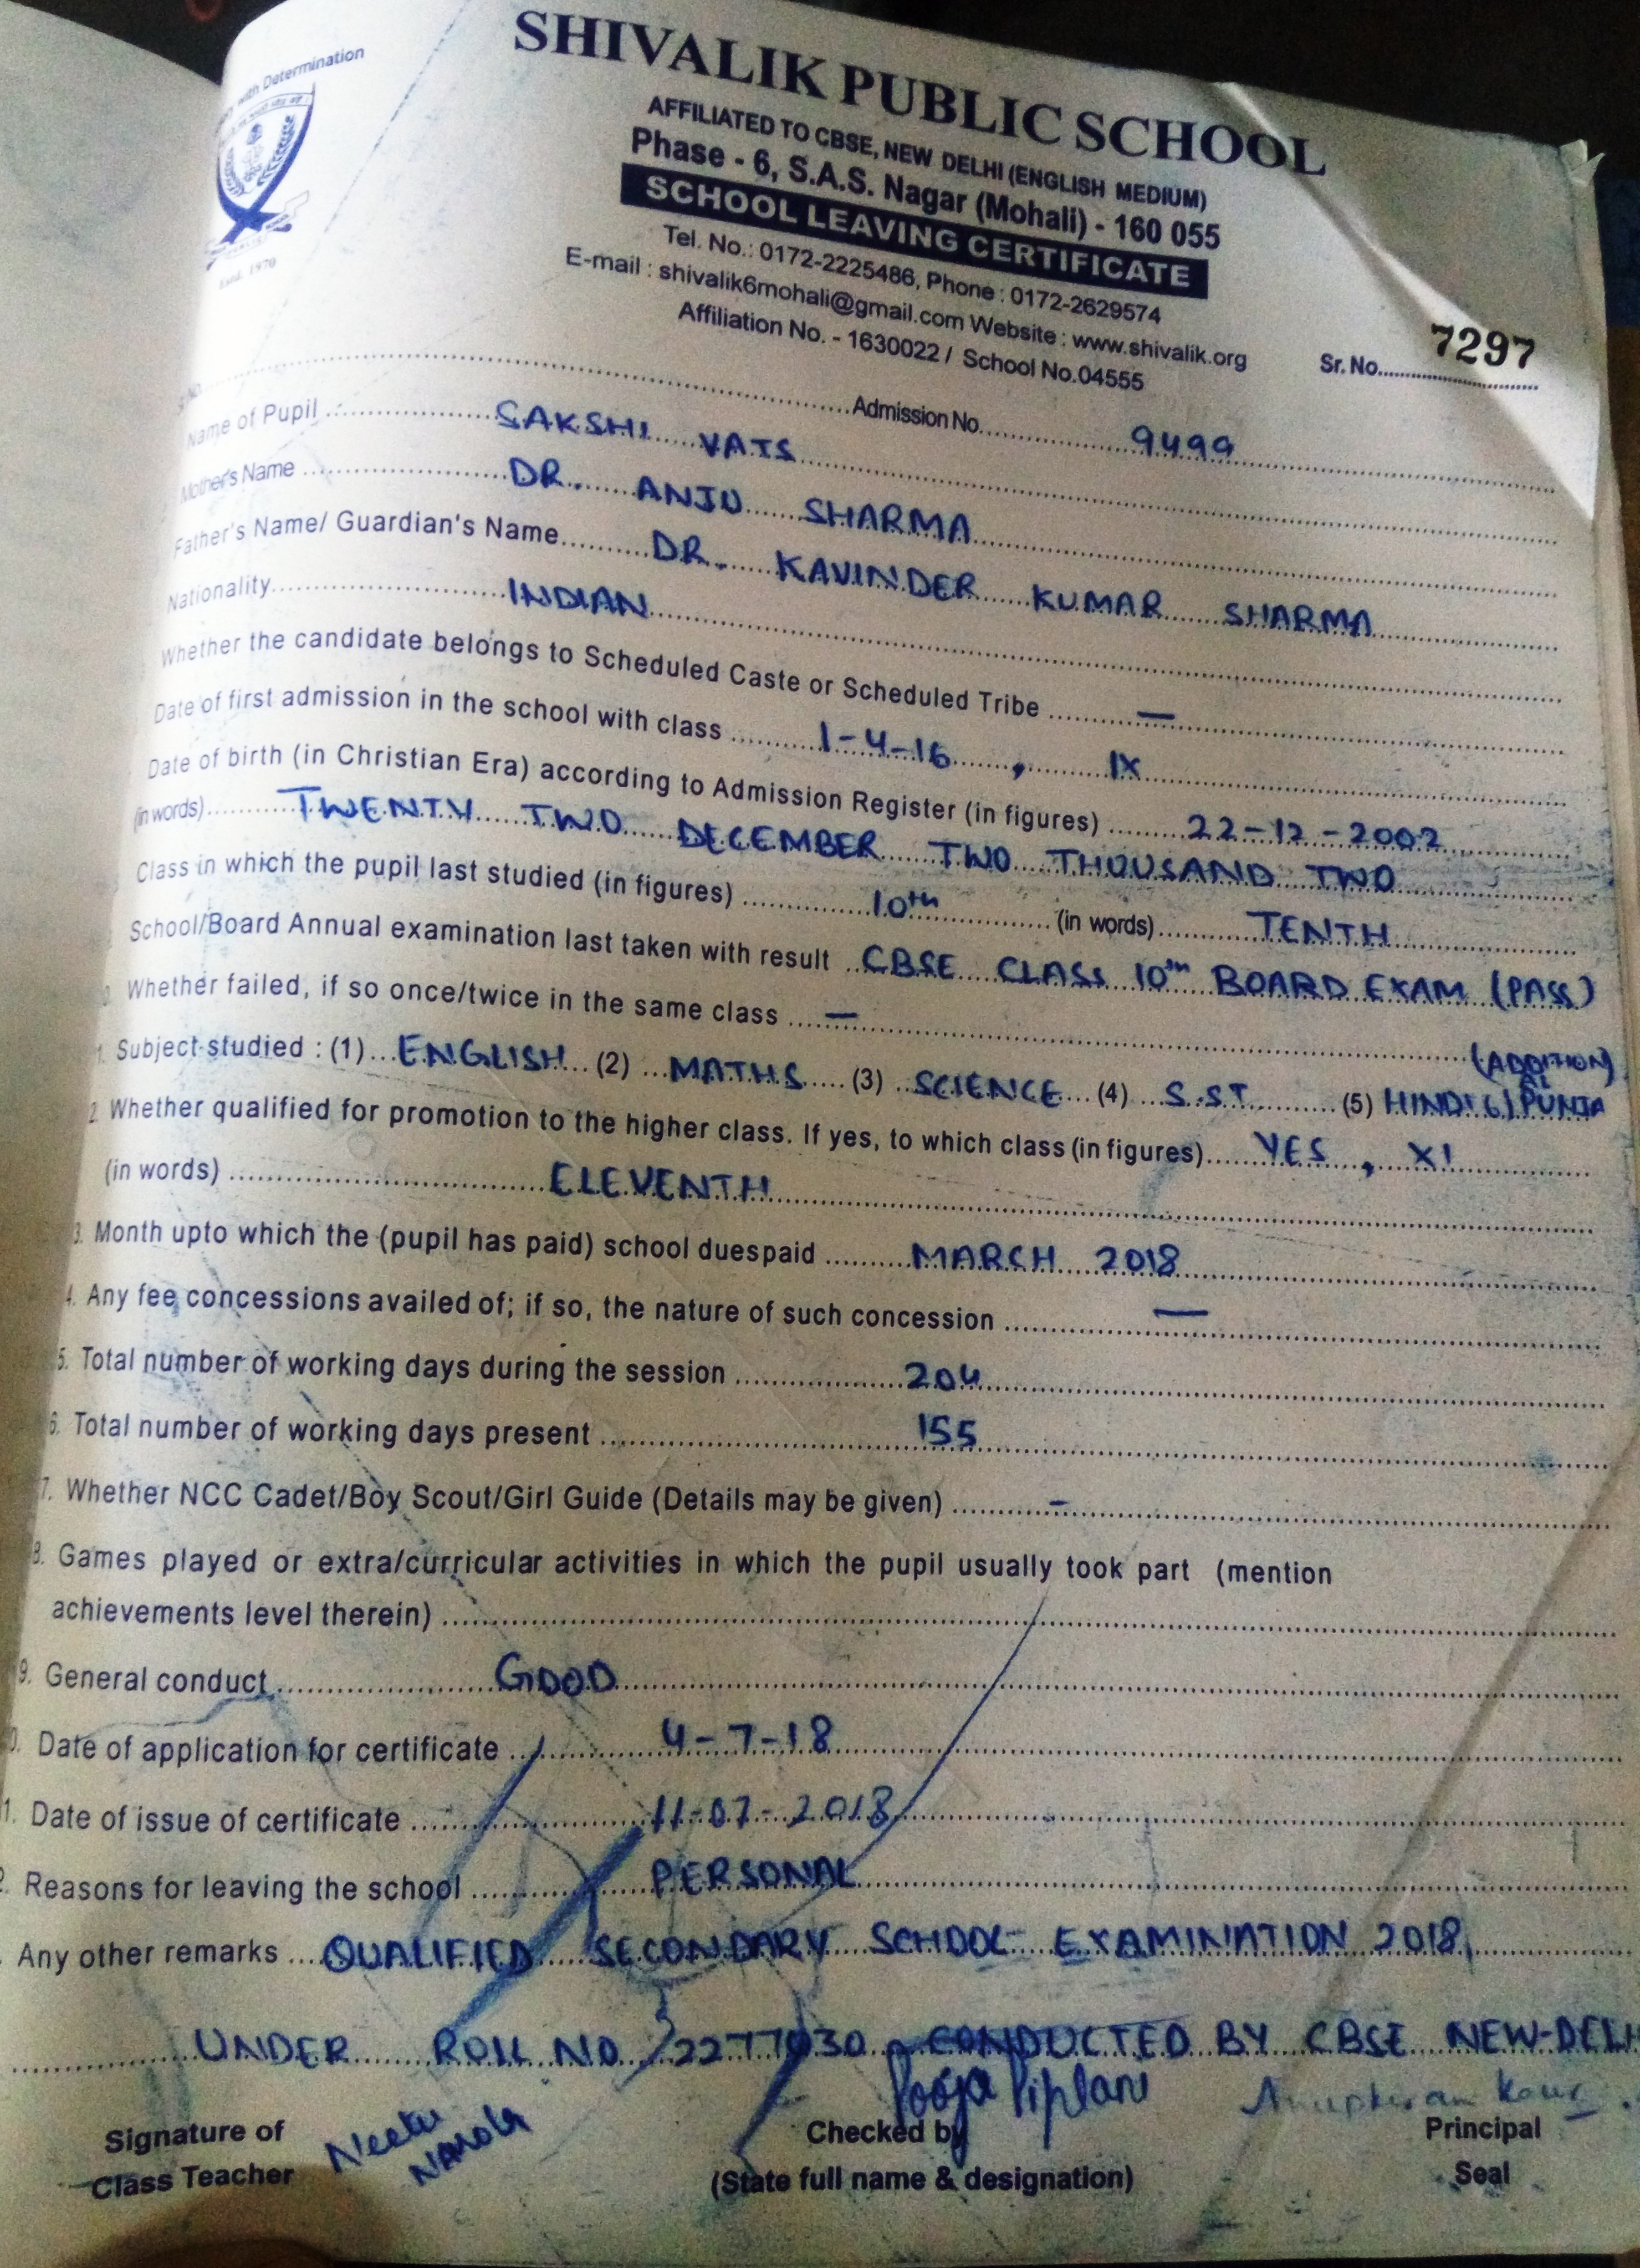 with Determination
Estd. 1970
SHIVALIK PUBLIC SCHOOL
AFFILIATED TO CBSE, NEW DELHI (ENGLISH MEDIUM)
Phase - 6, S.A.S. Nagar (Mohali) - 160 055
SCHOOL LEAVING CERTIFICATE
Tel. No.: 0172-2225486, Phone : 0172-2629574
E-mail : shivalik6mohali@gmail.com Website : www.shivalik.org
Affiliation No. - 1630022 / School No.04555
Sr. No. 7297
Admission No. 9499
Name of Pupil SAKSHI VATS
Mother's Name DR. ANJU SHARMA
Father's Name/ Guardian's Name DR. KAVINDER KUMAR SHARMA
Nationality INDIAN
Whether the candidate belongs to Scheduled Caste or Scheduled Tribe —
Date of first admission in the school with class 1-4-16 , IX
Date of birth (in Christian Era) according to Admission Register (in figures) 22-12-2002
(in words) TWENTY TWO DECEMBER TWO THOUSAND TWO
Class in which the pupil last studied (in figures) 10th (in words) TENTH
School/Board Annual examination last taken with result CBSE CLASS 10th BOARD EXAM (PASS)
Whether failed, if so once/twice in the same class —
Subject studied : (1) ENGLISH (2) MATHS (3) SCIENCE (4) S.ST (5) HINDI (6) PUNJA
(ADDITION)
AL
2. Whether qualified for promotion to the higher class. If yes, to which class (in figures) YES , XI
(in words) ELEVENTH
3. Month upto which the (pupil has paid) school duespaid MARCH 2018
4. Any fee concessions availed of; if so, the nature of such concession —
5. Total number of working days during the session 204
6. Total number of working days present 155
7. Whether NCC Cadet/Boy Scout/Girl Guide (Details may be given) -
8. Games played or extra/curricular activities in which the pupil usually took part (mention
achievements level therein)
9. General conduct GOOD
0. Date of application for certificate 4-7-18
1. Date of issue of certificate 11-07-2018
2. Reasons for leaving the school PERSONAL
Any other remarks QUALIFIED SECONDARY SCHOOL EXAMINATION 2018,
UNDER ROLL NO. CONDUCTED BY CBSE NEW-DELH
Pooja Piplani
Signature of
Class Teacher
Neetu
Narola
Checked by
(State full name & designation)
Principal
Seal